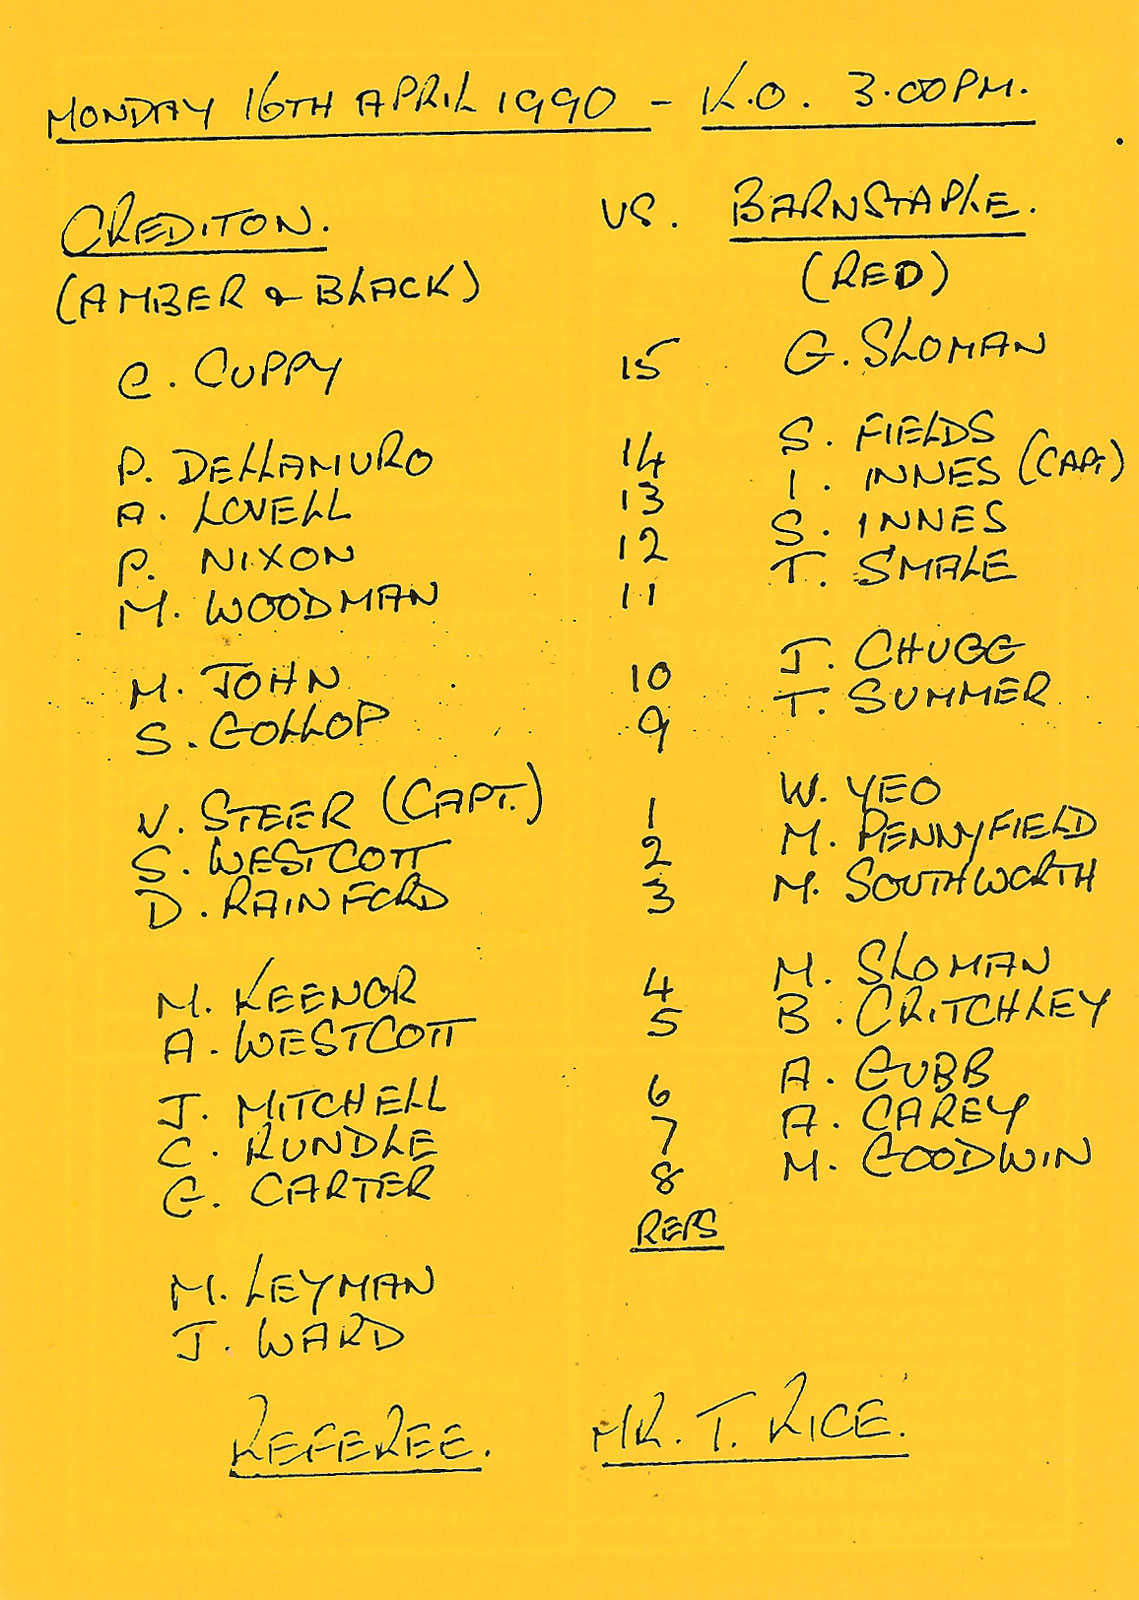 MONDAY 16TH APRIL 1990 - K.O. 3.00PM.
CREDITON. VS. BARNSTAPLE.
(AMBER & BLACK) (RED)
C. CUPPY 15 G. SLOMAN
P. DELLAMURO 14 S. FIELDS
A. LOVELL 13 I. INNES (CAPT.)
P. NIXON 12 S. INNES
M. WOODMAN 11 T. SMALE
M. JOHN 10 J. CHUGG
S. GOLLOP 9 T. SUMMER
N. STEER (CAPT.) 1 W. YEO
S. WESTCOTT 2 M. PENNYFIELD
D. RAINFORD 3 M. SOUTHWORTH
M. KEENOR 4 M. SLOMAN
A. WESTCOTT 5 B. CRITCHLEY
J. MITCHELL 6 A. GUBB
C. RUNDLE 7 A. CAREY
G. CARTER 8 M. GOODWIN
REPS
M. LEYMAN
J. WARD
REFEREE. MR. T. RICE.